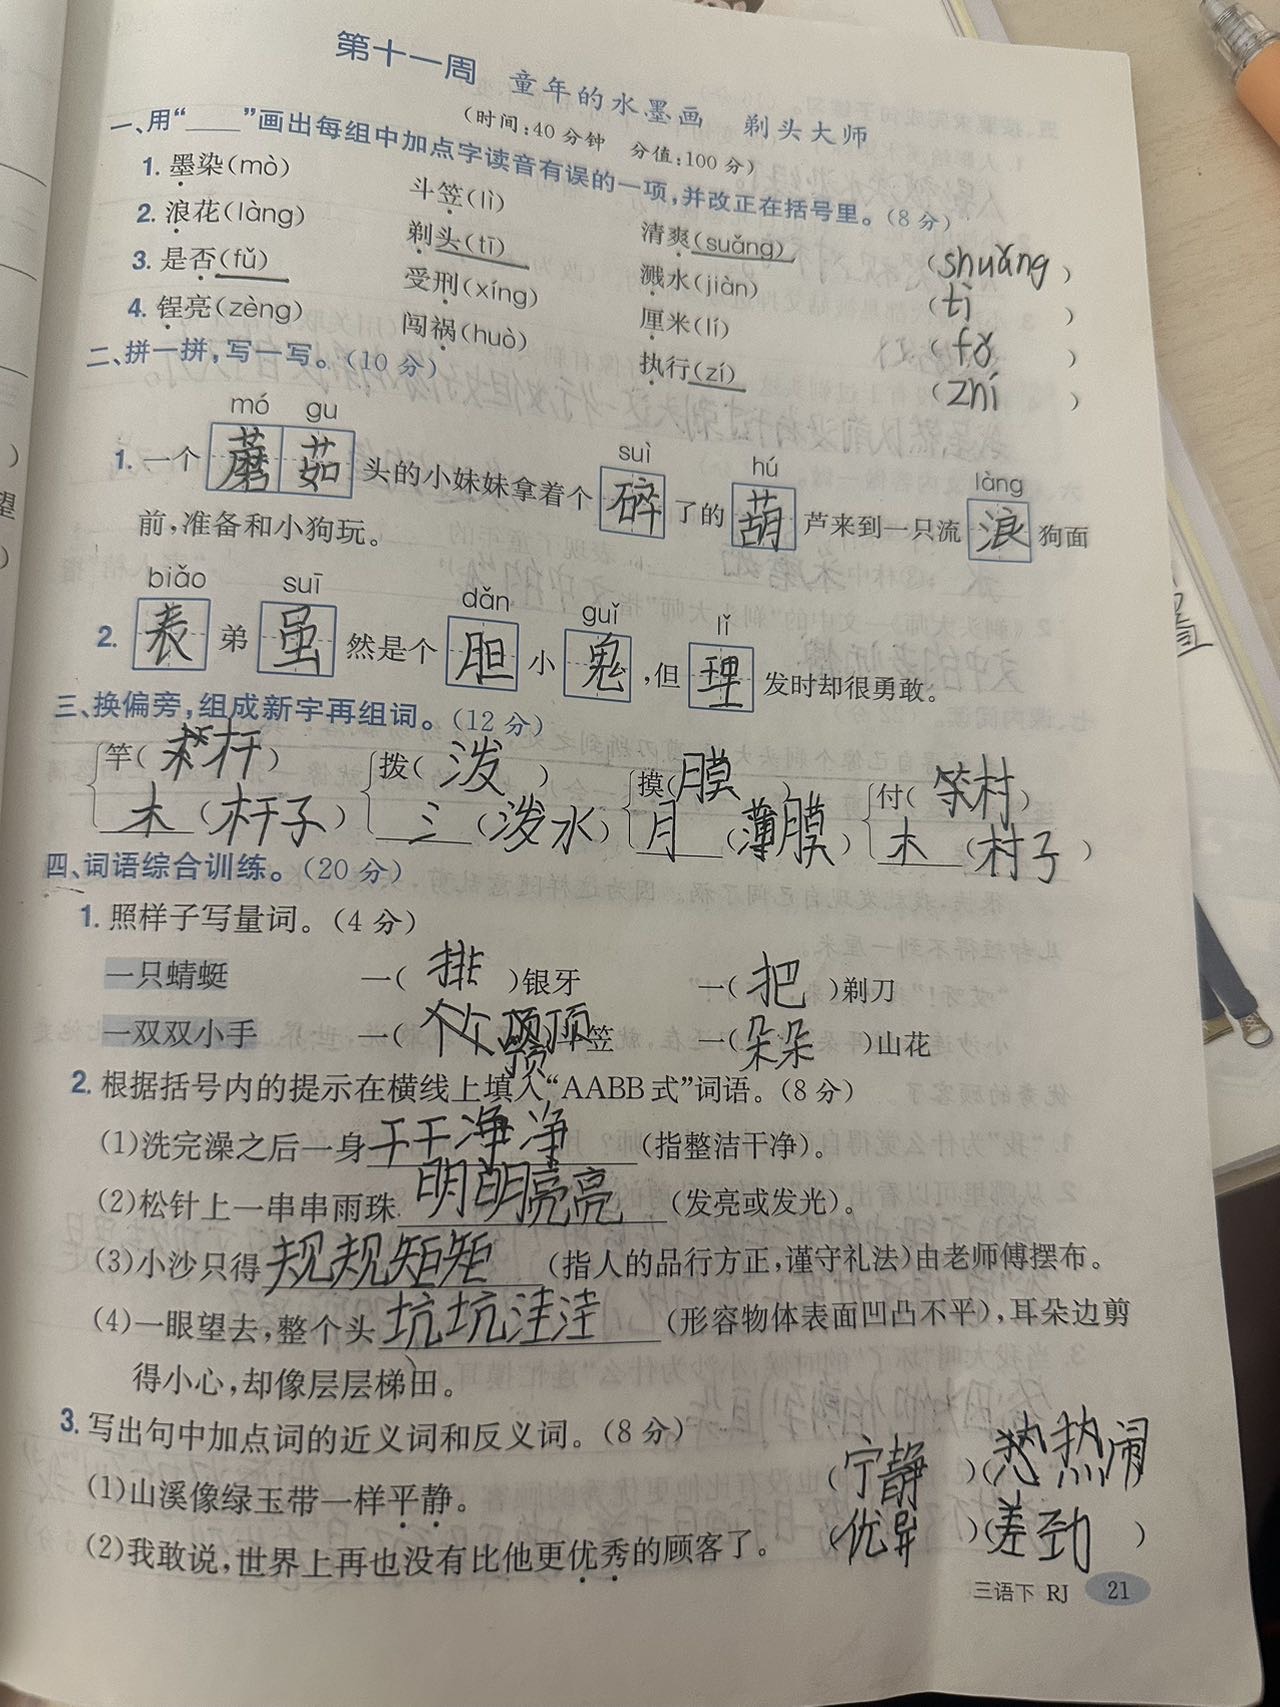 第十一周 童年的水墨画 剃头大师
(时间:40分钟 分值:100分)
一、用“____”画出每组中加点字读音有误的一项,并改正在括号里。(8分)
1. 墨染(mò) 斗笠(lì) 清爽(suǎng) (shuǎng)
2. 浪花(làng) 剃头(tī) 溅水(jiàn) (tì)
3. 是否(fǔ) 受刑(xíng) 厘米(lí) (fǒ)
4. 锃亮(zèng) 闯祸(huò) 执行(zí) (zhí)
二、拼一拼,写一写。(10分)
mó gu suì hú làng
1. 一个蘑茹头的小妹妹拿着个碎了的葫芦来到一只流浪狗面
前,准备和小狗玩。
biǎo suī dǎn guǐ lǐ
2. 表弟虽然是个胆小鬼,但理发时却很勇敢。
三、换偏旁,组成新字再组词。(12分)
竿(杆) 拨(泼) 摸(膜) 付(村)
木(杆子) 氵(泼水) 月(薄膜) 木(村子)
四、词语综合训练。(20分)
1. 照样子写量词。(4分)
一只蜻蜓 一(排)银牙 一(把)剃刀
一双双小手 一(顶顶)斗笠 一(朵朵)山花
2. 根据括号内的提示在横线上填入“AABB式”词语。(8分)
(1)洗完澡之后一身干干净净(指整洁干净)。
(2)松针上一串串雨珠明明亮亮(发亮或发光)。
(3)小沙只得规规矩矩(指人的品行方正,谨守礼法)由老师傅摆布。
(4)一眼望去,整个头坑坑洼洼(形容物体表面凹凸不平),耳朵边剪
得小心,却像层层梯田。
3. 写出句中加点词的近义词和反义词。(8分)
(1)山溪像绿玉带一样平静。 (宁静)(热闹)
(2)我敢说,世界上再也没有比他更优秀的顾客了。 (优异)(差劲)
三语下 RJ 21